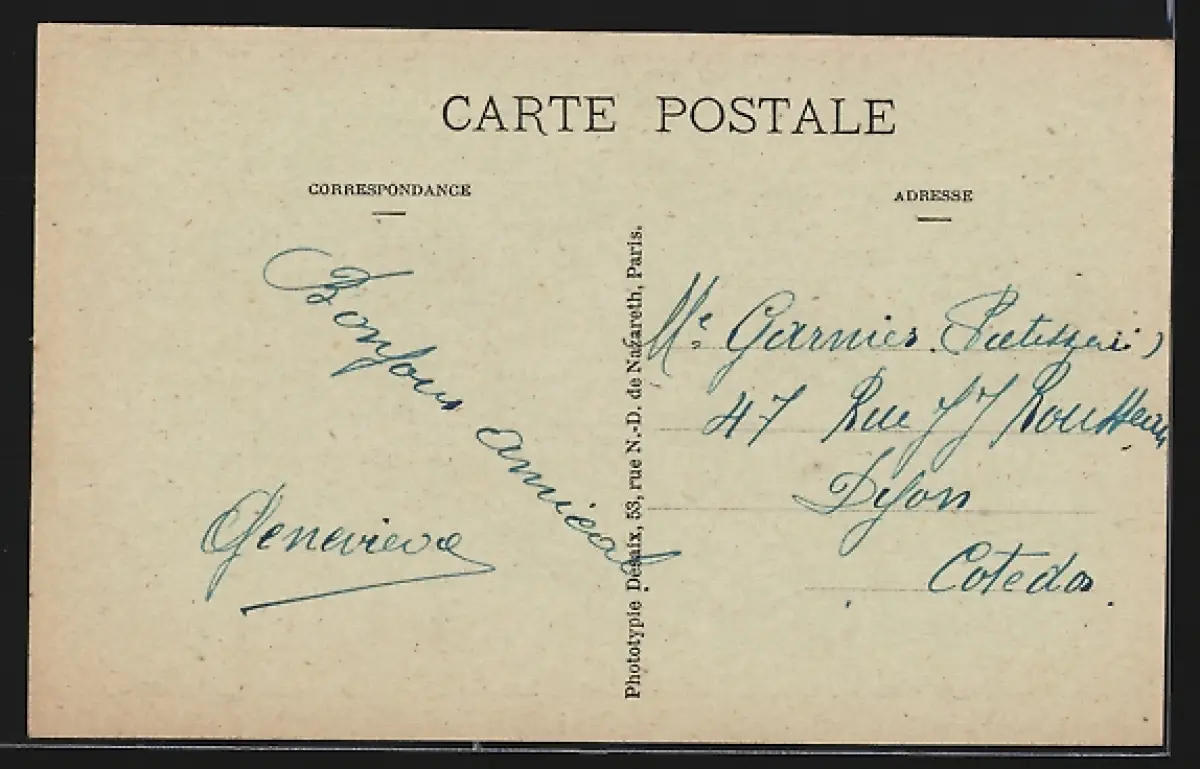 CARTE POSTALE
CORRESPONDANCE
Bonjour amical
Genevieve
Phototypie Désaix, 53, rue N.-D. de Nazareth, Paris.
ADRESSE
Me Garnier
47 Rue JJ Rousseau
Dijon
Cotedor